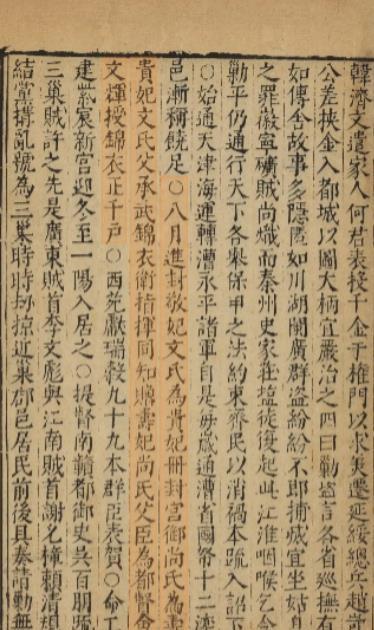 韓濟文遣家人何若表投千金于權門以求美遷延綏總兵趙
公差挾金入都城以圖大柄宜嚴治之四曰勦盜言各省巡撫有
如傳舍故事多隱匿如川湖閩廣群盜紛紛不即捕滅宜坐姑息
之罪嶶寧礦賊尚熾而秦州史家莊塩徒復起此江淮咽喉乞令
勦平仍通行天下各舉保甲之法約束齊民以消禍本疏入詔下
○始通天津海運轉漕永平諸軍自是毋歲通漕省國帑十二
邑漸稱饒足○八月進封敬妃文氏為貴妃冊封宮御尚氏為壽
貴妃文氏父承武錦衣衛指揮同知贈壽妃尚氏父臣為都督僉
文輝授錦衣正千戶○西苑獻瑞穀九十九本群臣表賀○命工
建紫宸新宮迎冬至一陽入居之○提督南贛都御史吳百朋疏
三巢賊許之先是廣東賊首李文彪與江南賊首謝允樟賴清規
結黨搆亂號為三巢時時抄掠近巢郡邑居民前後具奏請勦無